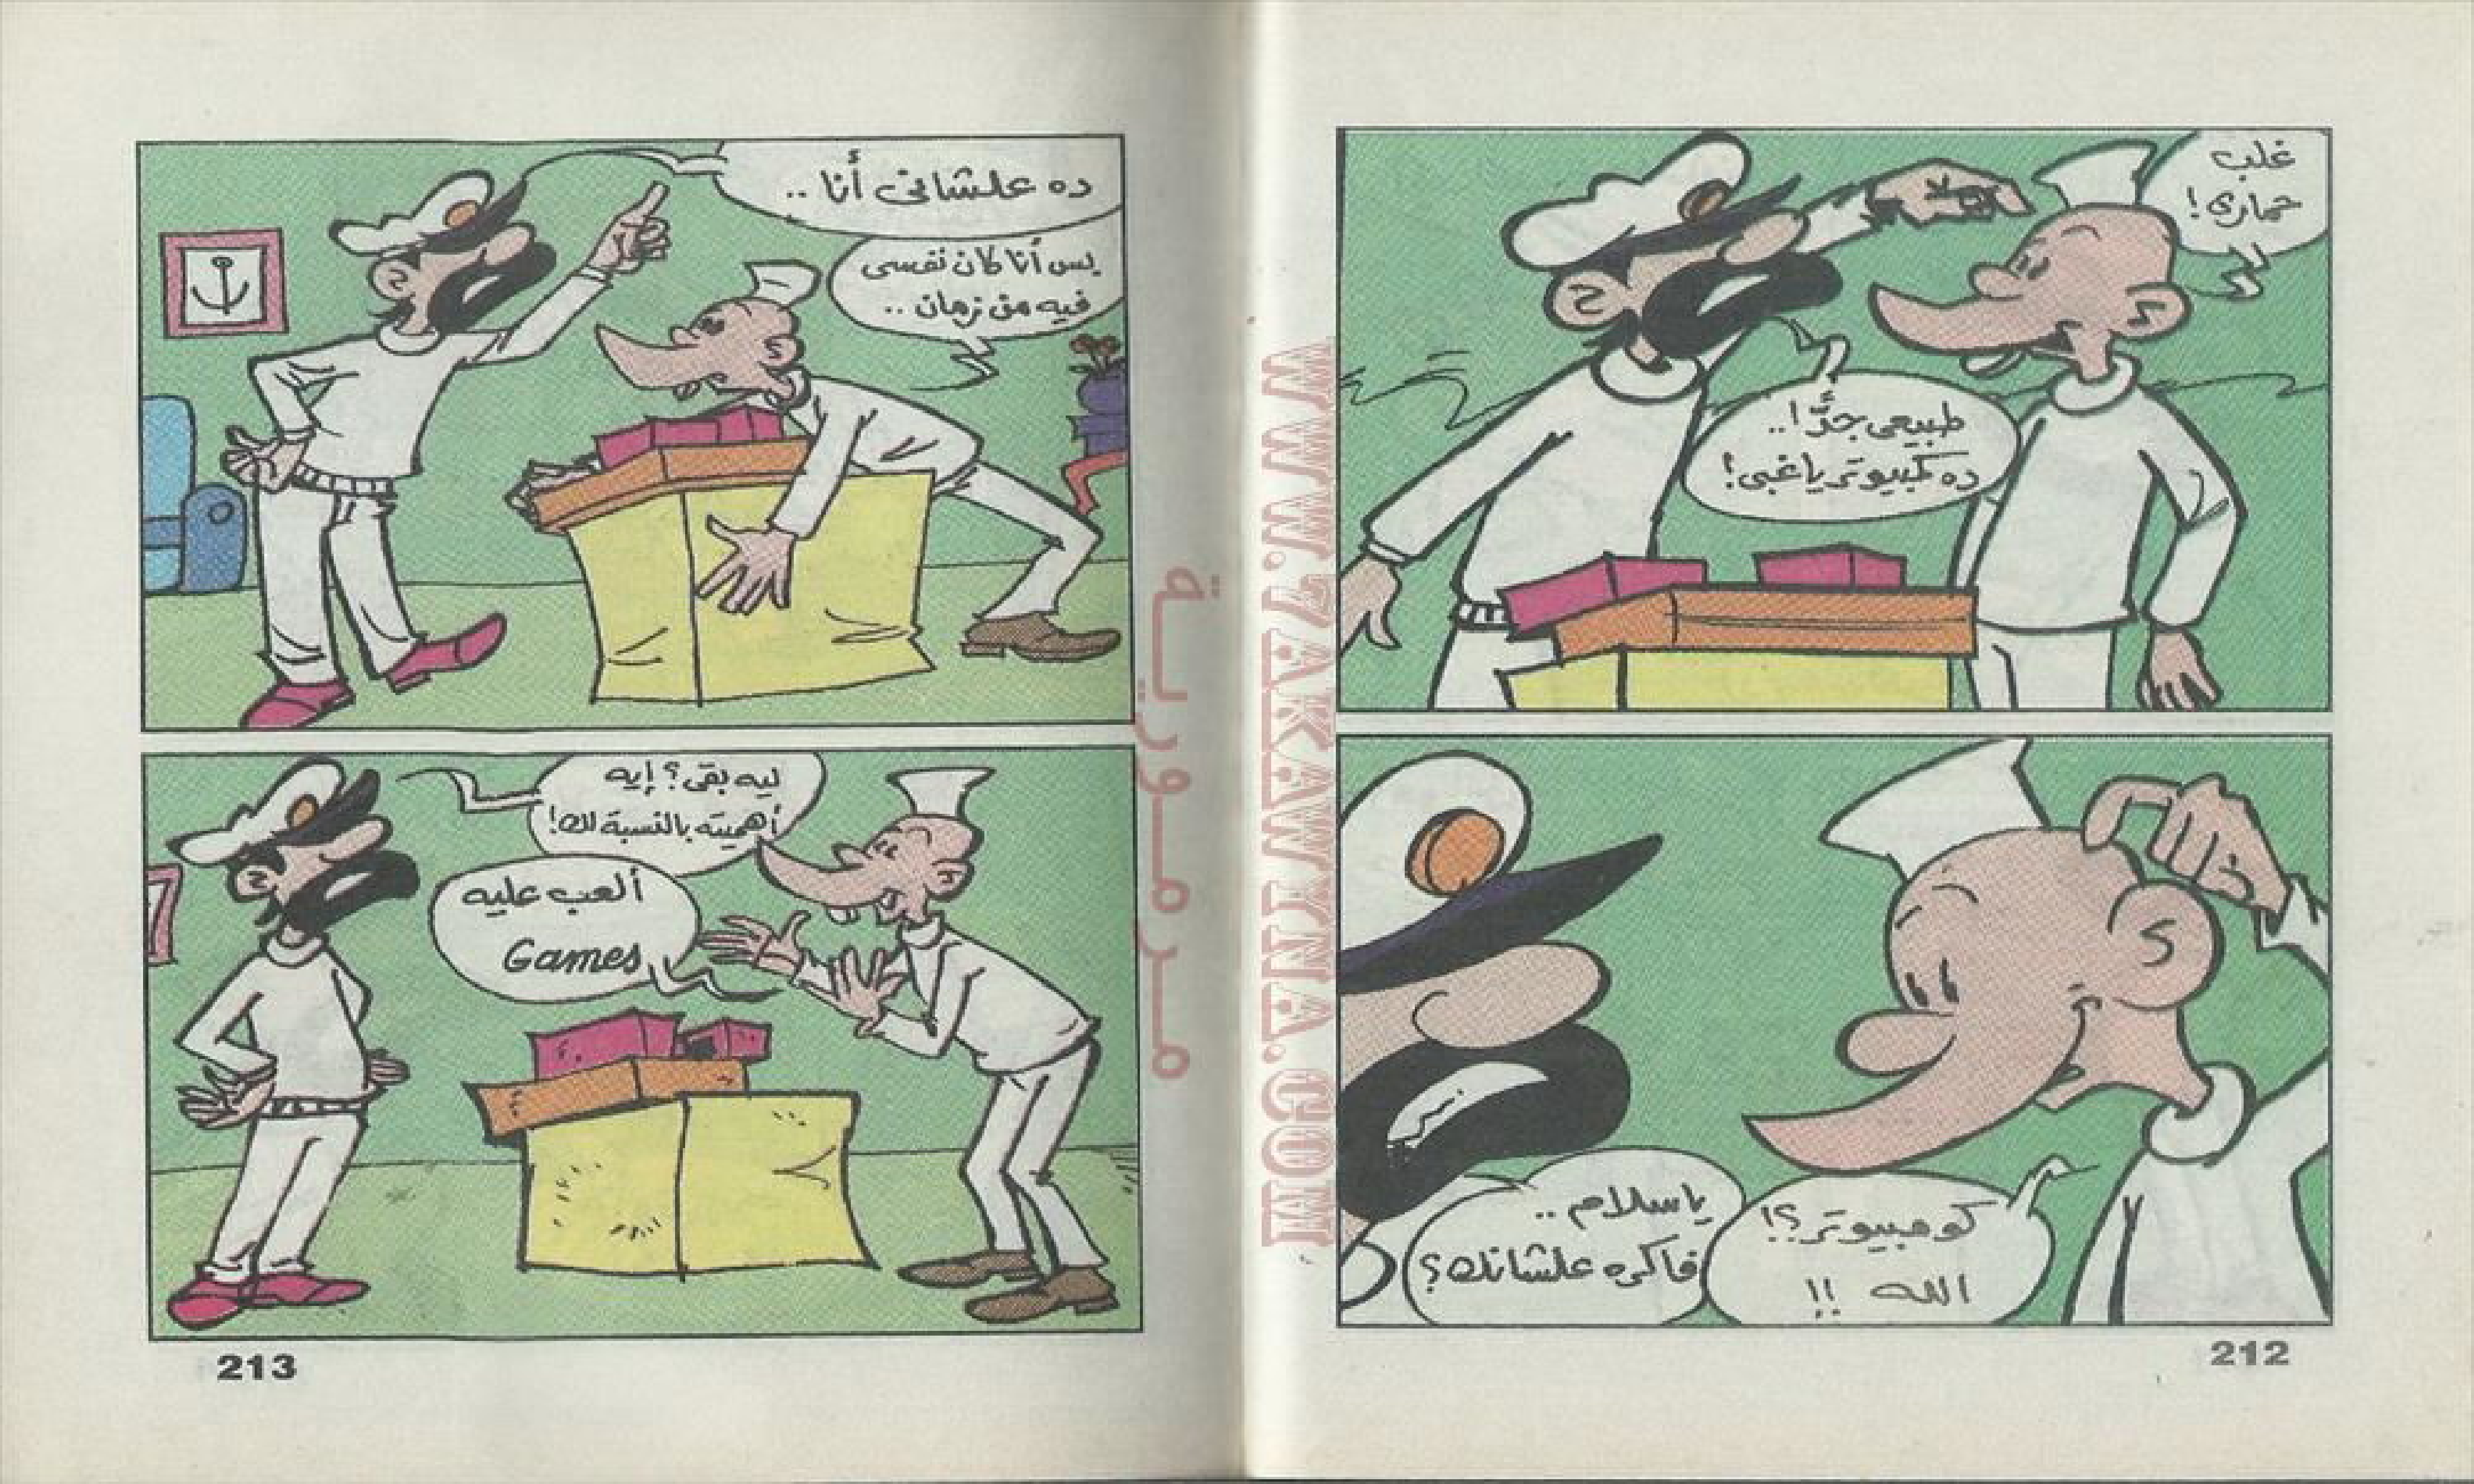 غلب
حمارى!
طبيعى جدًّا..
ده كمبيوتر ياغبى!
كومبيوتر؟!
الله !!
ياسلام ..
فاكره علشانك؟
212
ده علشانى أنا ..
بس أنا كان نفسى
فيه من زمان ..
ليه بقى؟ إيه
أهميته بالنسبة لك!
ألعب عليه
Games
213
WWW.7AKAWYNA.COM
مرمورية